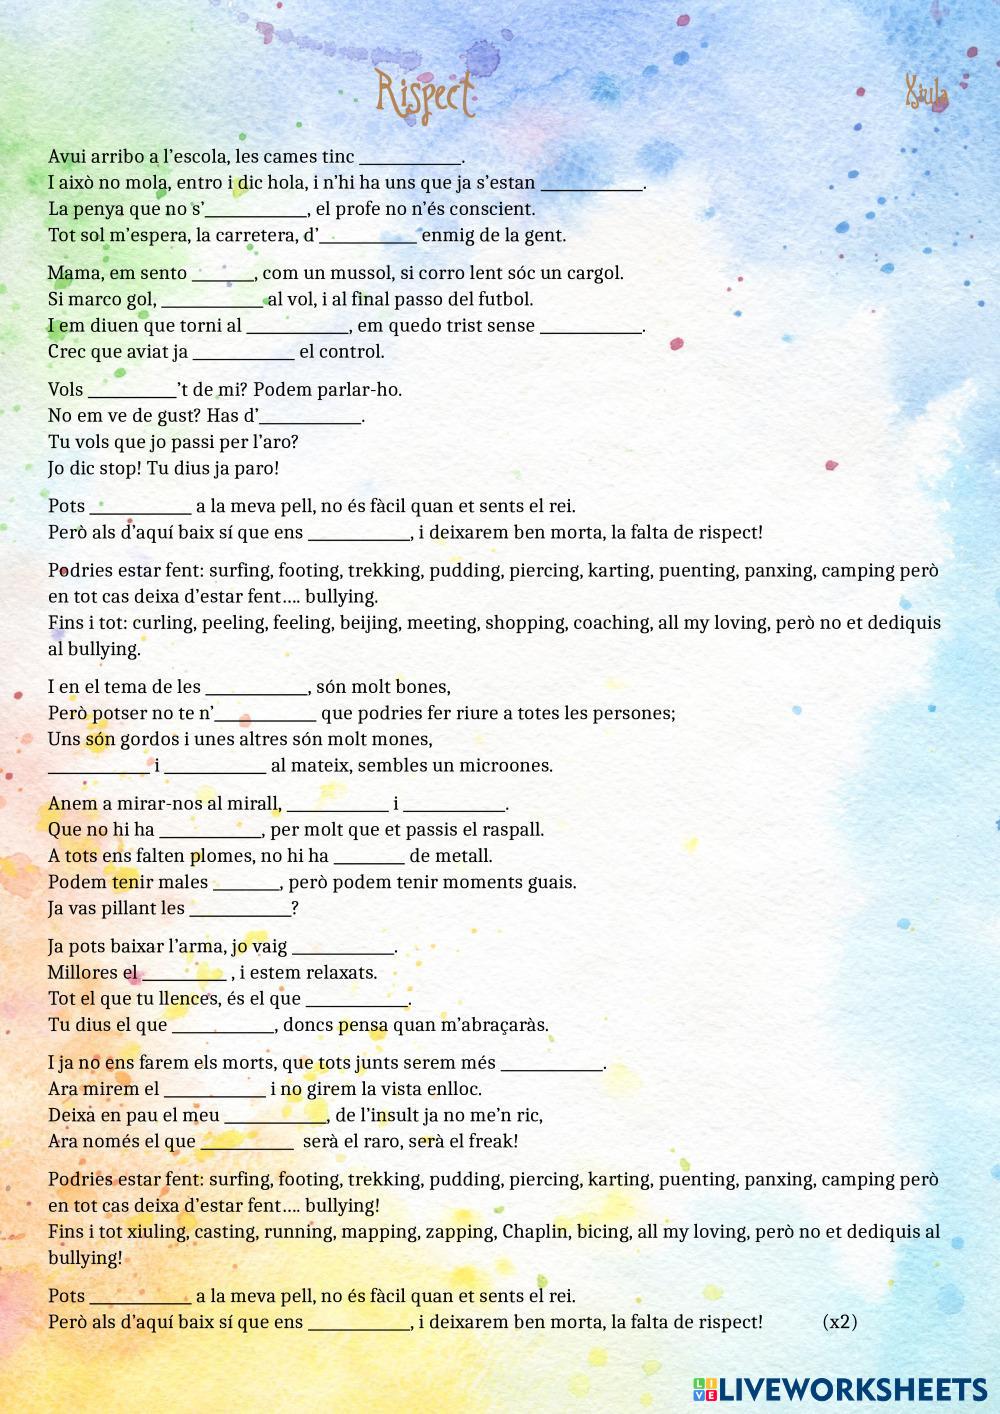 Rispect
Xiula
Avui arribo a l’escola, les cames tinc ___________.
I això no mola, entro i dic hola, i n’hi ha uns que ja s’estan ___________.
La penya que no s’___________, el profe no n’és conscient.
Tot sol m’espera, la carretera, d’___________ enmig de la gent.
Mama, em sento _______, com un mussol, si corro lent sóc un cargol.
Si marco gol, ___________ al vol, i al final passo del futbol.
I em diuen que torni al ___________, em quedo trist sense ___________.
Crec que aviat ja ___________ el control.
Vols __________’t de mi? Podem parlar-ho.
No em ve de gust? Has d’___________.
Tu vols que jo passi per l’aro?
Jo dic stop! Tu dius ja paro!
Pots ___________ a la meva pell, no és fàcil quan et sents el rei.
Però als d’aquí baix sí que ens ___________, i deixarem ben morta, la falta de rispect!
Podries estar fent: surfing, footing, trekking, pudding, piercing, karting, puenting, panxing, camping però
en tot cas deixa d’estar fent…. bullying.
Fins i tot: curling, peeling, feeling, beijing, meeting, shopping, coaching, all my loving, però no et dediquis
al bullying.
I en el tema de les ___________, són molt bones,
Però potser no te n’___________ que podries fer riure a totes les persones;
Uns són gordos i unes altres són molt mones,
___________ i ___________ al mateix, sembles un microones.
Anem a mirar-nos al mirall, ___________ i ___________.
Que no hi ha ___________, per molt que et passis el raspall.
A tots ens falten plomes, no hi ha ________ de metall.
Podem tenir males _______, però podem tenir moments guais.
Ja vas pillant les ___________?
Ja pots baixar l’arma, jo vaig ___________.
Millores el _________ , i estem relaxats.
Tot el que tu llences, és el que ___________.
Tu dius el que ___________, doncs pensa quan m’abraçaràs.
I ja no ens farem els morts, que tots junts serem més ___________.
Ara mirem el ___________ i no girem la vista enlloc.
Deixa en pau el meu ___________, de l’insult ja no me’n ric,
Ara només el que __________ serà el raro, serà el freak!
Podries estar fent: surfing, footing, trekking, pudding, piercing, karting, puenting, panxing, camping però
en tot cas deixa d’estar fent…. bullying!
Fins i tot xiuling, casting, running, mapping, zapping, Chaplin, bicing, all my loving, però no et dediquis al
bullying!
Pots ___________ a la meva pell, no és fàcil quan et sents el rei.
Però als d’aquí baix sí que ens ___________, i deixarem ben morta, la falta de rispect! (x2)
LIVE LIVEWORKSHEETS